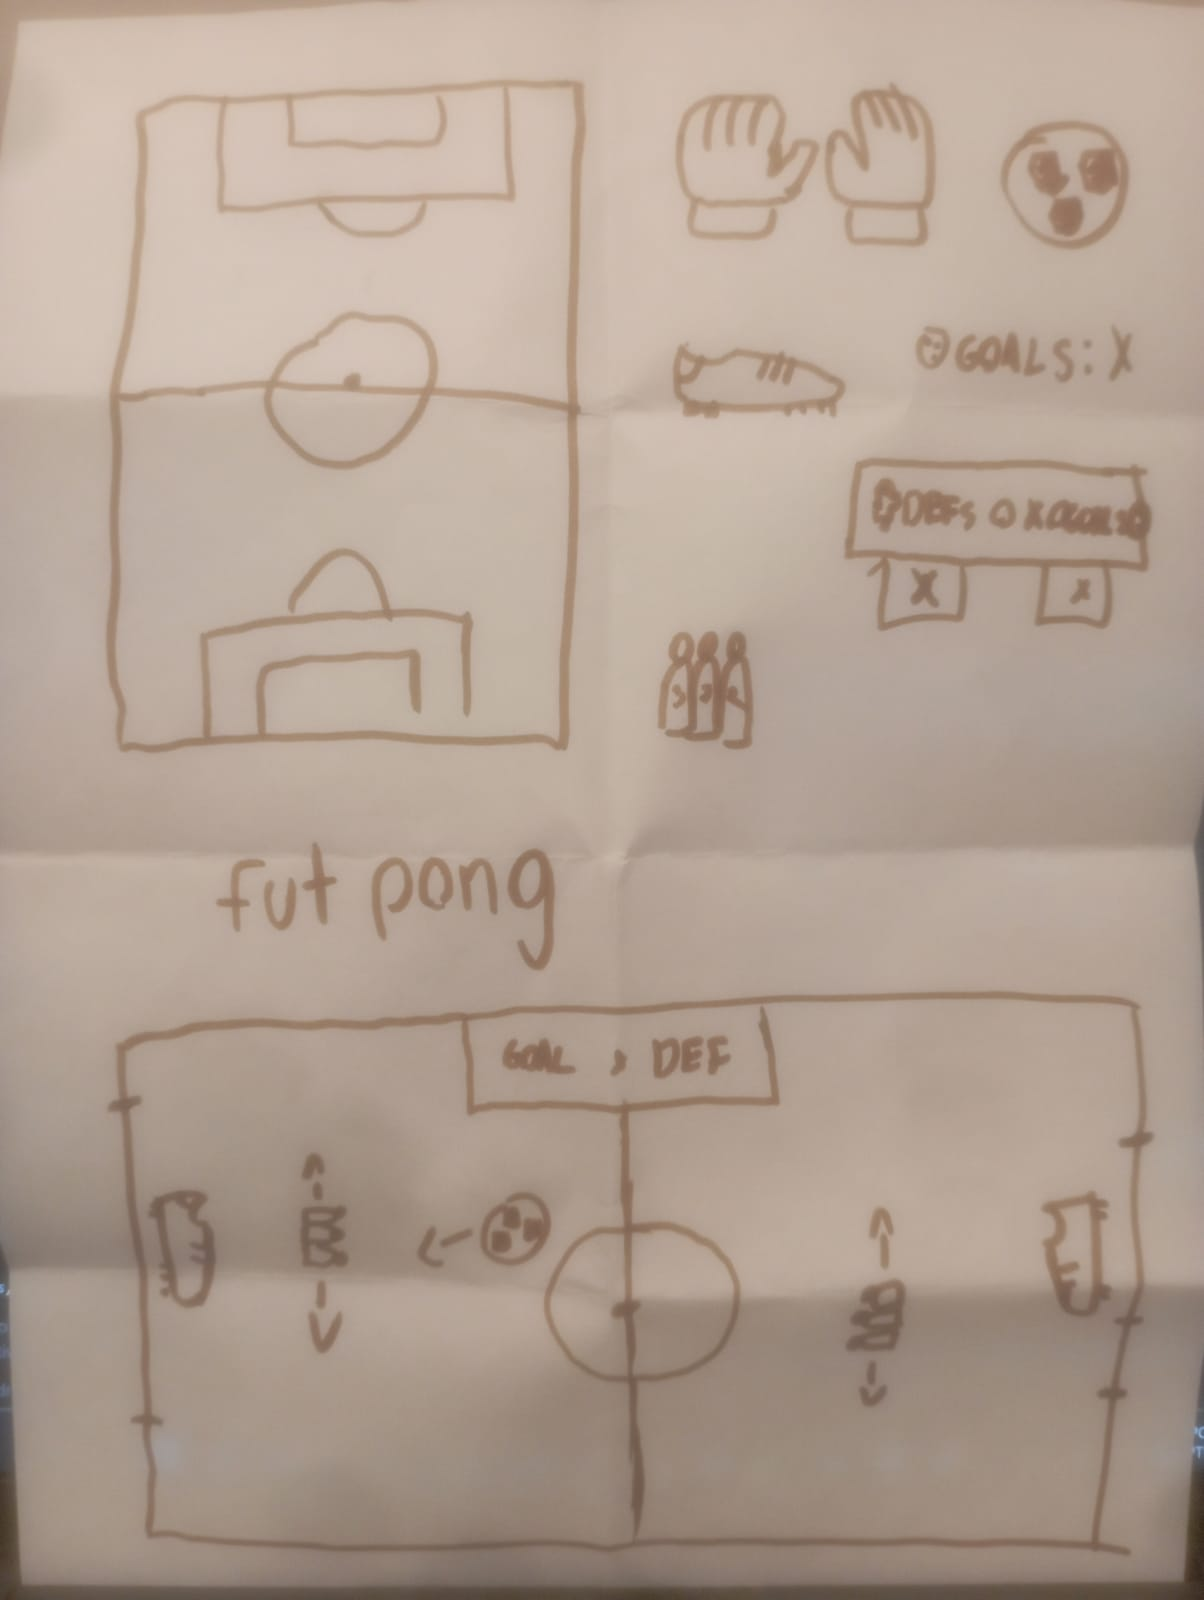 GOALS: X
DEFS
X X
fut pong
GOAL DEF